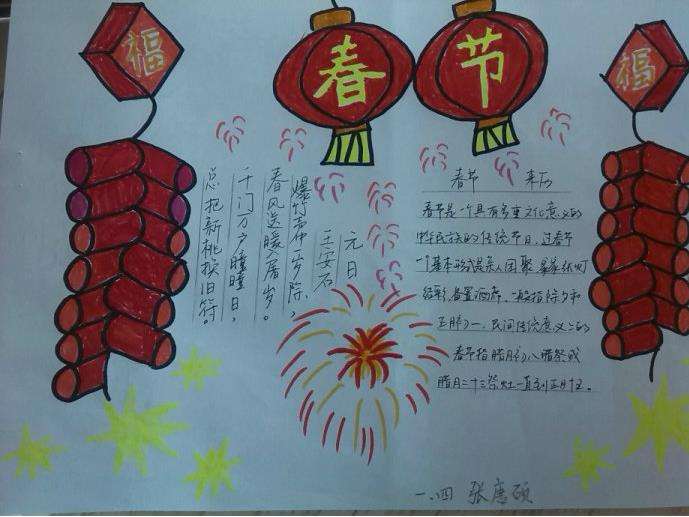 福
春节
福
元日
王安石
爆竹声中一岁除，
春风送暖入屠苏。
千门万户曈曈日，
总把新桃换旧符。
春节 来历
春节是一个具有多重文化意义的
中华民族的传统节日，过春节
一个基本形式是亲人团聚
结彩、备置酒席、一般指除夕和
正月初一，民间传统意义上的
春节指腊月初八腊祭或
腊月二十三祭灶一直到正月十五。
一、四 张唐硕